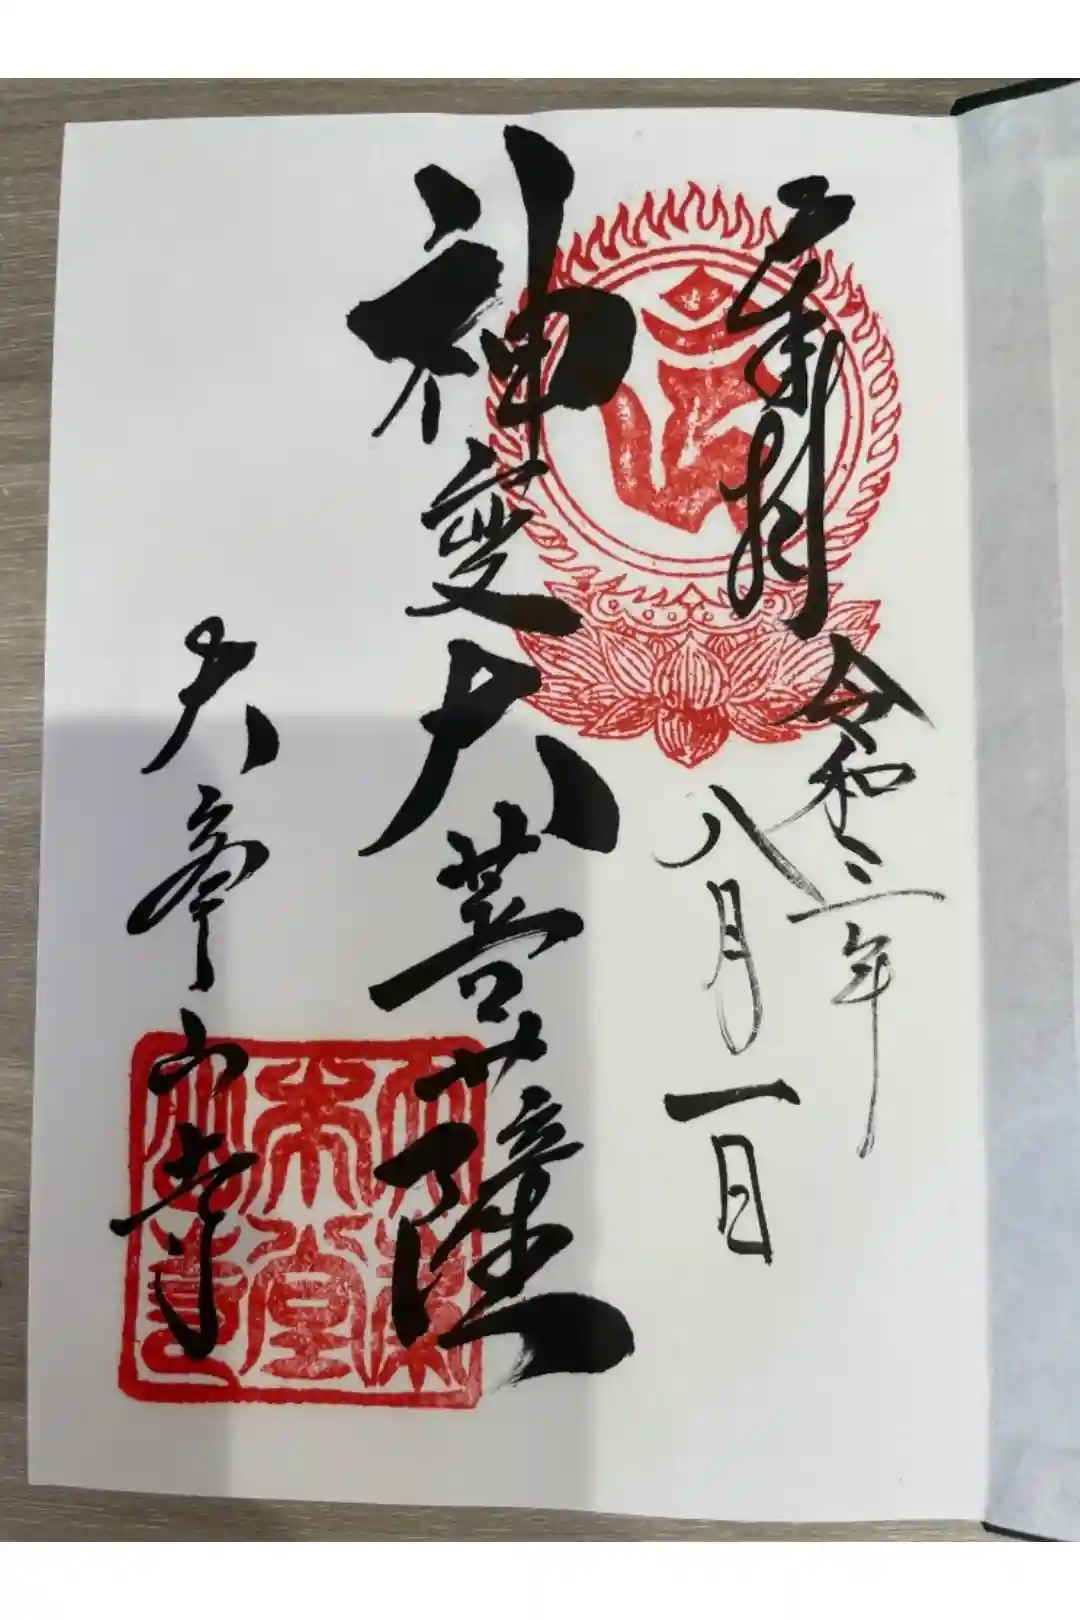 奉拝
令和二年
八月一日
神変大菩薩
大峯山寺